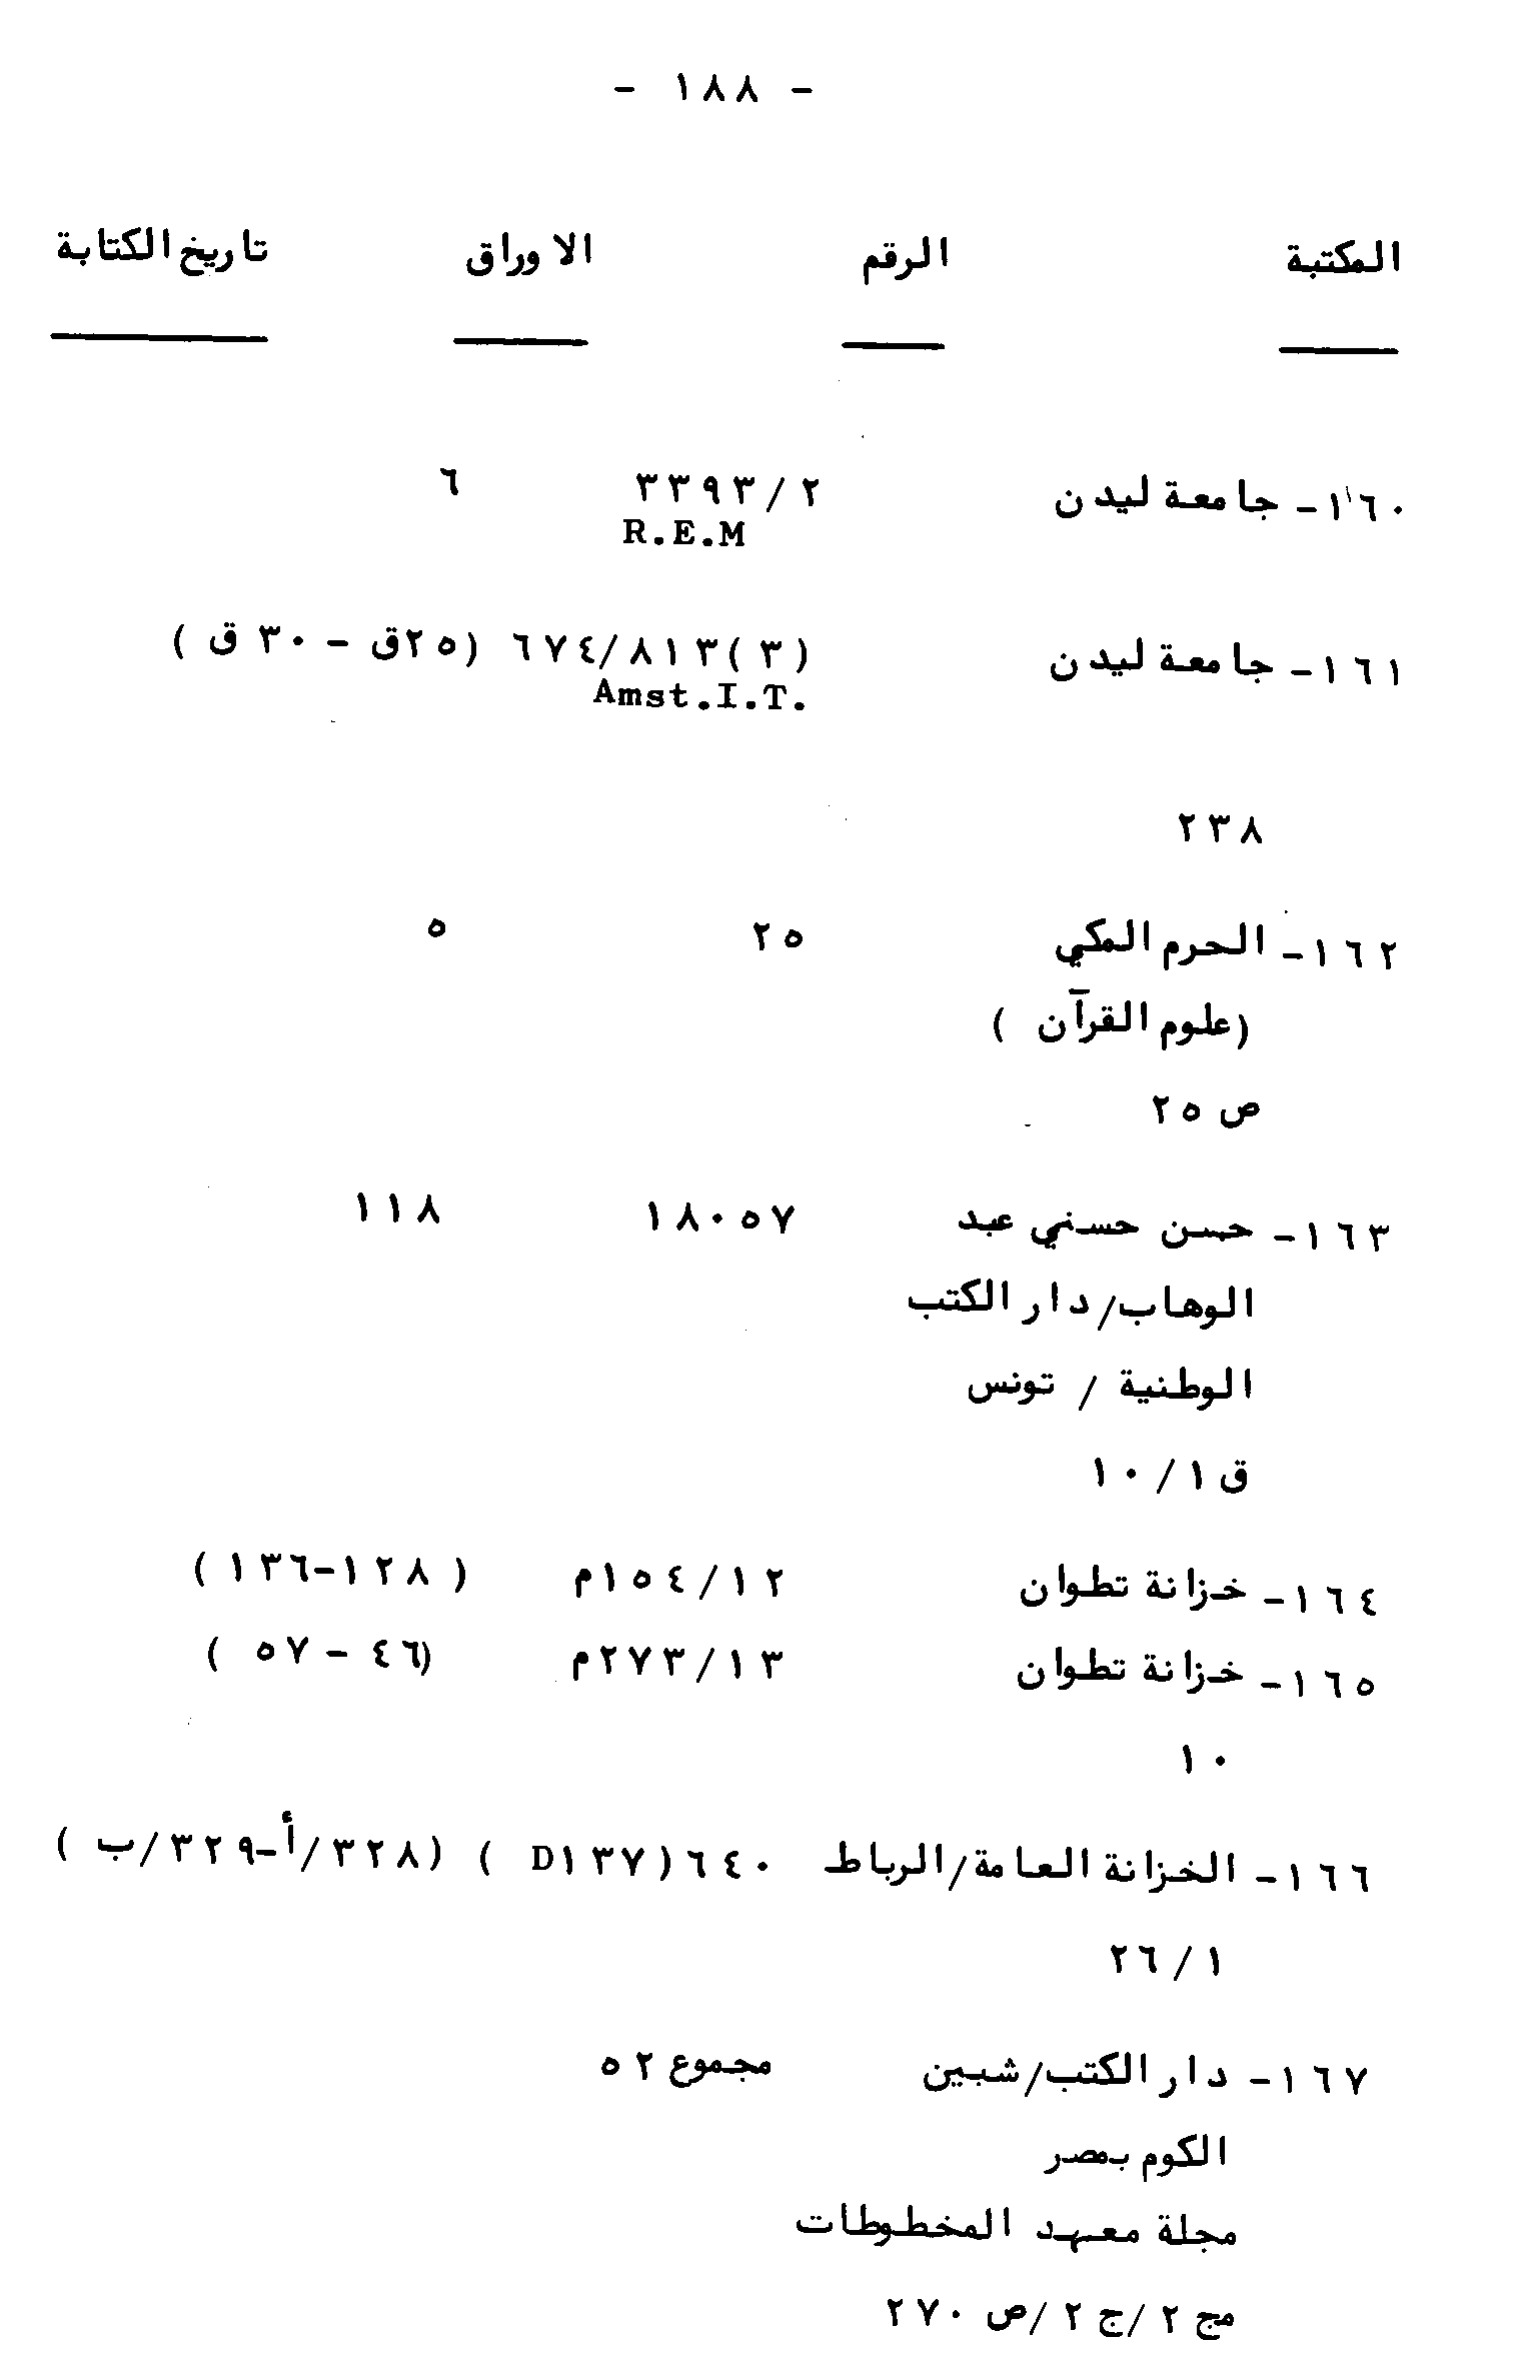 - ١٨٨ -
المكتبة الرقم الاوراق تاريخ الكتابة
١٦٠- جامعة ليدن ٣٣٩٣/٢ ٦
R.E.M
١٦١- جامعة ليدن ٦٧٤/٨١٣(٣) (٢٥ق - ٣٠ ق )
Amst.I.T.
٢٣٨
١٦٢- الحرم المكي ٢٥ ٥
(علوم القرآن )
ص ٢٥
١٦٣- حسن حسني عبد ١٨٠٥٧ ١١٨
الوهاب/دار الكتب
الوطنية / تونس
ق ١٠/١
١٦٤- خزانة تطوان ١٥٤/١٢م ( ١٢٨-١٣٦ )
١٦٥- خزانة تطوان ٢٧٣/١٣م (٤٦ - ٥٧ )
١٠
١٦٦- الخزانة العامة/الرباط ٦٤٠ (D١٣٧ ) (٣٢٨/أ-٣٢٩/ب )
٢٦/١
١٦٧- دار الكتب/شبين مجموع ٥٢
الكوم بمصر
مجلة معهد المخطوطات
مج ٢ /ج ٢ /ص ٢٧٠